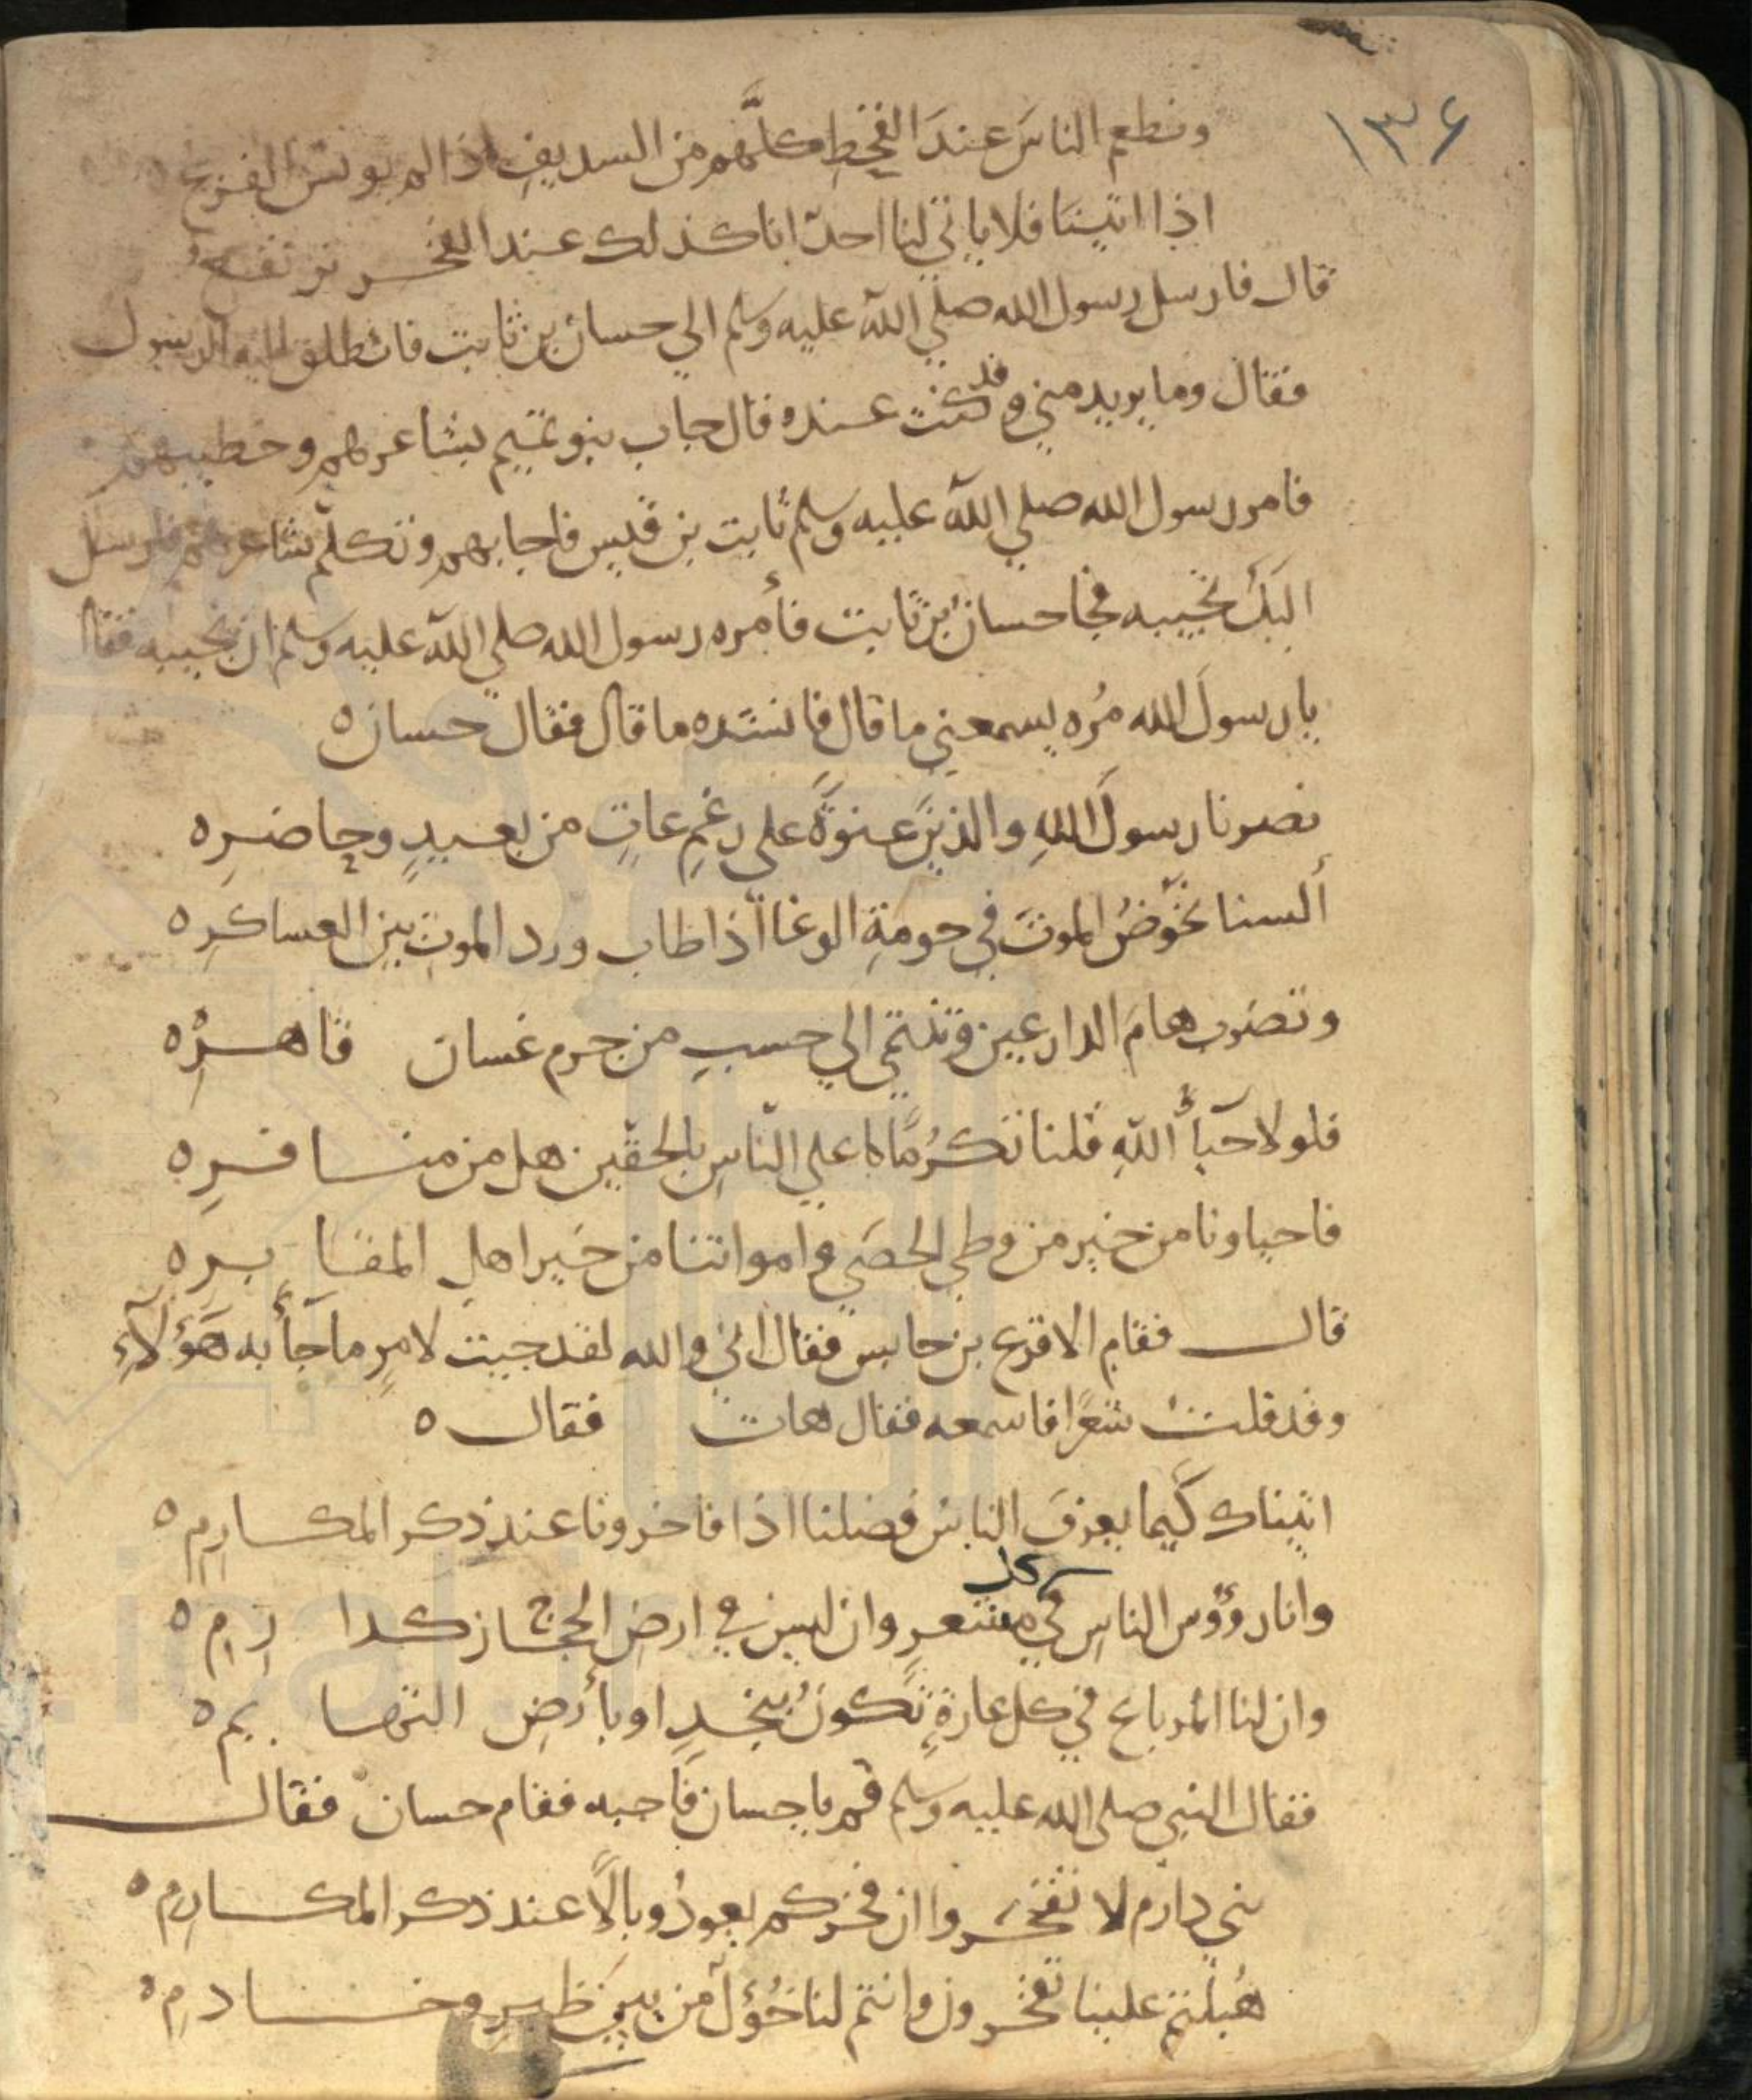 ١٣٤
ونطعم الناسَ عندَ القحطِ كلَّهم من السديفِ اذا لم يونس القزع
اذا ابينا فلا يابي لنا احدٌ انا كذلك عند الفخر نرتفعُ
قال فارسل رسول الله صلي الله عليه وسلم الي حسان بن ثابت فانطلق اليه الرسول
فقال وما يريد مني وقد كنت عنده قال جاب بنو تميم بشاعرهم وخطيبهم
فامر رسول الله صلي الله عليه وسلم ثابت بن قيس فاجابهم وتكلم شاعرهم فارسل
اليك تجيبه فجا حسان بن ثابت فأمره رسول الله صلي الله عليه وسلم ان يجيبه فقال
يا رسولَ الله مُره يسمعني ما قال فانشده ما قال فقال حسان ه
نصرنا رسولَ اللهِ والدينَ عنوةً على رغمِ عاتٍ من بعيدٍ وحاضرِ ه
ألسنا نخوّضُ الموتَ في حومةِ الوغا اذا طاب ورد الموتِ بين العساكرِ ه
ونضرب هامَ الدارعين وننتمي الي حسبٍ من جرم غسان قاهرِ ه
فلولا حيأُ اللهِ قلنا تكرُّما علي الناسِ بالحقين هل من منافرِ ه
فاحياونا من خير من وطي الحصَي وامواتنا من خير اهلِ المقابرِ ه
قال فقام الاقرع بن حابس فقال اني والله لقد جيت لامرٍ ما جأَ به هَؤلآءِ
وقد قلت شعرًا فاسمعه فقال هات فقال ه
اتيناك كيما يعرفَ الناسُ فضلنا اذا فاخرونا عند ذكر المكارِمِ ه
وانا رؤوس الناسِ في كل معشرٍ وان ليس في ارضِ الحجاز كدارِمِ ه
وان لنا المرباع في كل غارةٍ تكونُ بنجدٍ او بأرضِ التهايم ه
فقال النبي صلى الله عليه وسلم قم يا حسان فاجبه فقام حسان فقال
بني دارم لا تفخروا ان فخركم يعودُ وبالًا عند ذكر المكارم ه
هُبلتم علينا تفخرون وانتم لنا خُوَلٌ من بينِ ظيرٍ وخادمِ ه